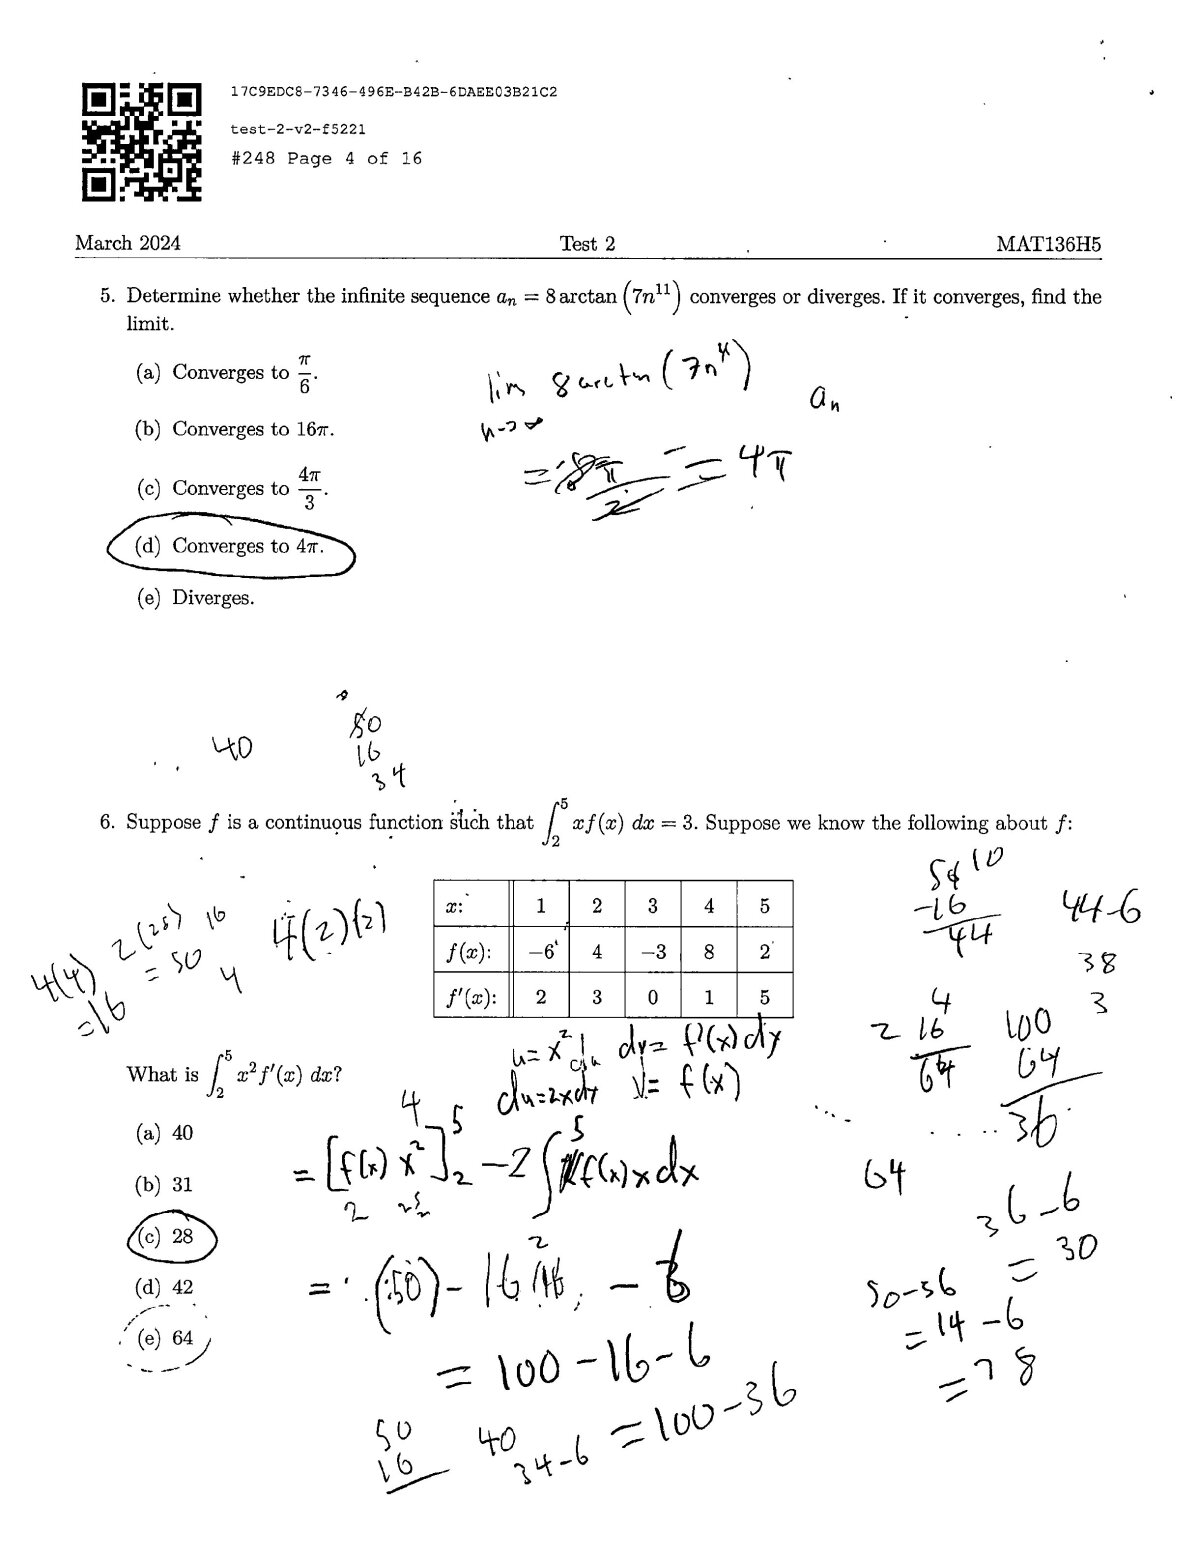 17C9EDC8-7346-496E-B42B-6DAEE03B21C2
test-2-v2-f5221
#248 Page 4 of 16
March 2024 Test 2 MAT136H5
5. Determine whether the infinite sequence aₙ = 8 arctan (7n¹¹) converges or diverges. If it converges, find the
limit.
(a) Converges to π/6.
(b) Converges to 16π.
(c) Converges to 4π/3.
(d) Converges to 4π.
(e) Diverges.
lim 8 arctan (7n¹¹)
n→∞
aₙ
= 8π/2 = 4π
40
50
16
34
6. Suppose f is a continuous function such that ∫₂⁵ xf(x) dx = 3. Suppose we know the following about f:
x: 1 2 3 4 5
f(x): −6 4 −3 8 2
f′(x): 2 3 0 1 5
4(4)
=16
2(25)
= 50
16
4
4(2)(2)
-16
44
44-6
38
3
4
2 16
64
100
64
36
u=x² dv= f'(x)dx
du=2xdx v= f(x)
What is ∫₂⁵ x²f′(x) dx?
(a) 40
(b) 31
(c) 28
(d) 42
(e) 64
4
= [f(x) x²]₂⁵ -2 ∫₂⁵ f(x)xdx
2 25
= (50) - 16 - 6
= 100-16-6
= 100-36
50
16
40
34-6
64
36-6
= 30
50-36
= 14-6
= 8